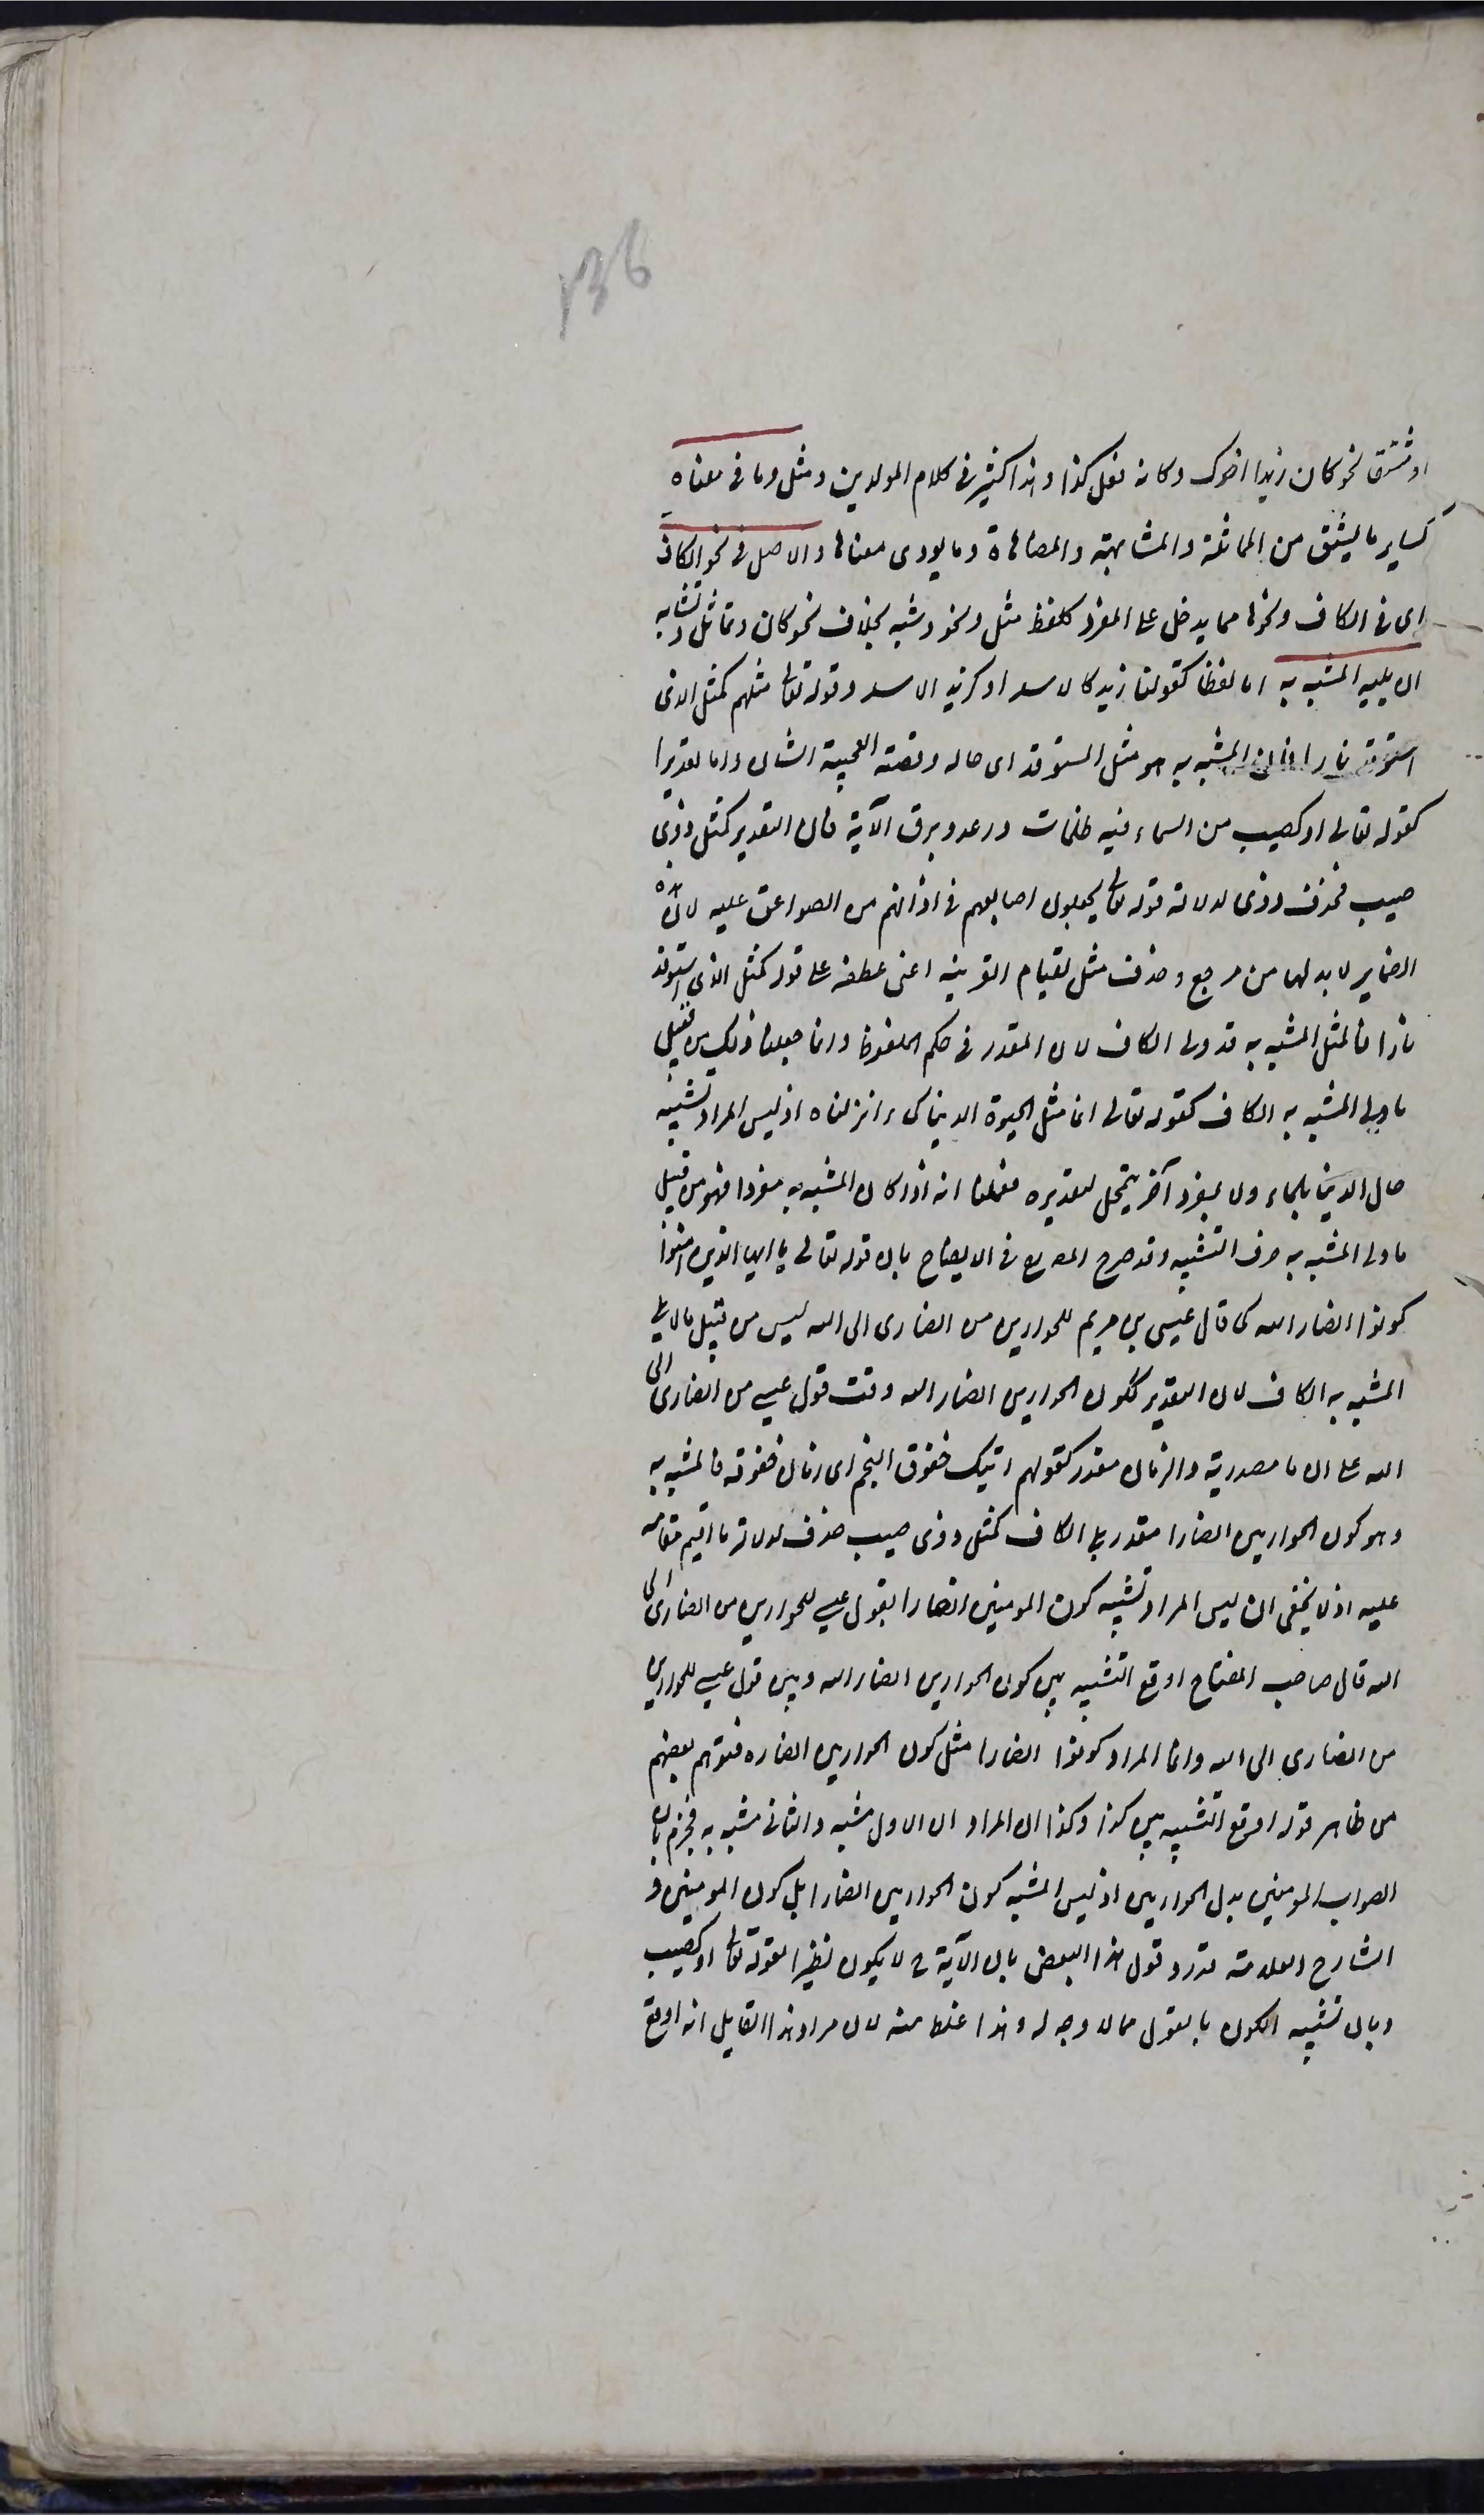 136
او مشتق نحو كان زيدا اخوك وكانه فعل كذا وهذا كثير في كلام المولدين ومثل وما في معناه
كساير ما يشتق من المماثلة والمشابهة والمضاهاة وما يودى معناها والاصل في نحو الكاف
اى في الكاف ونحوها مما يدخل على المفرد كلفظ مثل ونحو وشبه بخلاف نحو كان وتماثل وتشابه
ان يليه المشبه به اما لفظا كقولنا زيد كالاسد او كزيد الاسد وقوله تعالى مثلهم كمثل الذى
استوقد نارا فان المشبه به هو مثل المستوقد اى حاله وقصته العجيبة الشان واما تقديرا
كقوله تعالى او كصيب من السماء فيه ظلمات ورعد وبرق الآية فان التقدير كمثل ذوى
صيب فحذف ذوى لدلالة قوله تعالى يجعلون اصابعهم في اذانهم من الصواعق عليه لان هذه
الضماير لابد لها من مرجع وحذف مثل لقيام القرينه اعنى عطفه على قوله كمثل الذى استوقد
نارا فالمثل المشبه به قد ولى الكاف لان المقدر في حكم الملفوظ وانما جعلنا ذلك من قبيل
ما ولى المشبه به الكاف كقوله تعالى انما مثل الحيوة الدنيا كماء انزلناه اذ ليس المراد تشبيه
حال الدنيا بالماء ولا بمفرد آخر يتمحل لتقديره فعلمنا انه اذا كان المشبه به مفردا فهو من قبيل
ما ولى المشبه به حرف التشبيه وقد صرح المصرع في الايضاح بان قوله تعالى يا ايها الذين امنوا
كونوا انصار الله كما قال عيسى بن مريم للحواريين من انصارى الى الله ليس من قبيل مالا يلى
المشبه به الكاف لان التقدير ككون الحواريين انصار الله وقت قول عيسى من انصارى الى
الله على ان ما مصدرية والزمان مقدر كقولهم اتيك خفوق النجم اى زمان خفوقه فالمشبه به
وهو كون الحواريين انصارا مقدر يلى الكاف كمثل ذوى صيب حذف لدلالة ما اقيم مقامه
عليه اذ لا يخفى ان ليس المراد تشبيه كون المومنين انصارا بقول عيسى للحواريين من انصارى الى
الله قال صاحب المفتاح اوقع التشبيه بين كون الحواريين انصار الله وبين قول عيسى للحواريين
من انصارى الى الله وانما المراد كونوا انصارا مثل كون الحواريين انصاره فتوهم بعضهم
من ظاهر قوله اوقع التشبيه بين كذا وكذا ان المراد ان الاول مشبه والثانى مشبه به فجزم بان
الصواب المومنين بدل الحواريين اذ ليس المشبه كون الحواريين انصارا بل كون المومنين و
الشارح العلامة قدرد قول هذا البعض بان الآية ح لا يكون نظيرا لقوله تعالى او كصيب
وبان تشبيه الكون بالقول مما لا وجه له وهذا غلط منه لان مراد هذا القايل انه اوقع